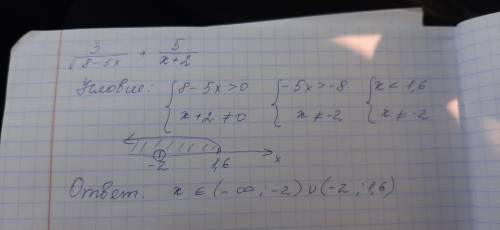 3/√(8-5x) + 5/(x+2)
Условие: { 8-5x>0 { -5x>-8 { x<1,6
x+2≠0 x≠-2 x≠-2
-2 1,6 x
Ответ. x ∈ (-∞;-2)∪(-2;1,6)